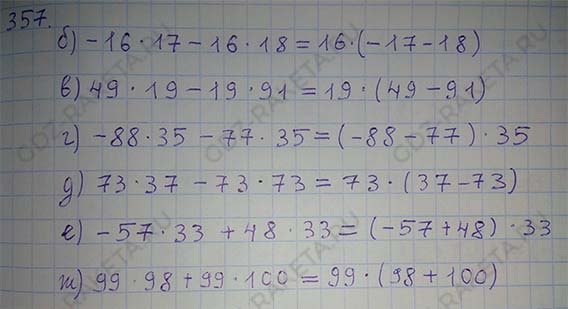 357.
б) -16 · 17 - 16 · 18 = 16 · (-17 - 18)
в) 49 · 19 - 19 · 91 = 19 · (49 - 91)
г) -88 · 35 - 77 · 35 = (-88 - 77) · 35
д) 73 · 37 - 73 · 73 = 73 · (37 - 73)
е) -57 · 33 + 48 · 33 = (-57 + 48) · 33
ж) 99 · 98 + 99 · 100 = 99 · (98 + 100)